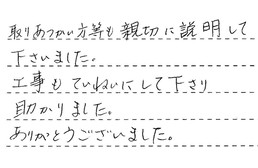 取りあつかい方等も親切に説明して
下さいました。
工事もていねいにして下さり
助かりました。
ありがとうございました。